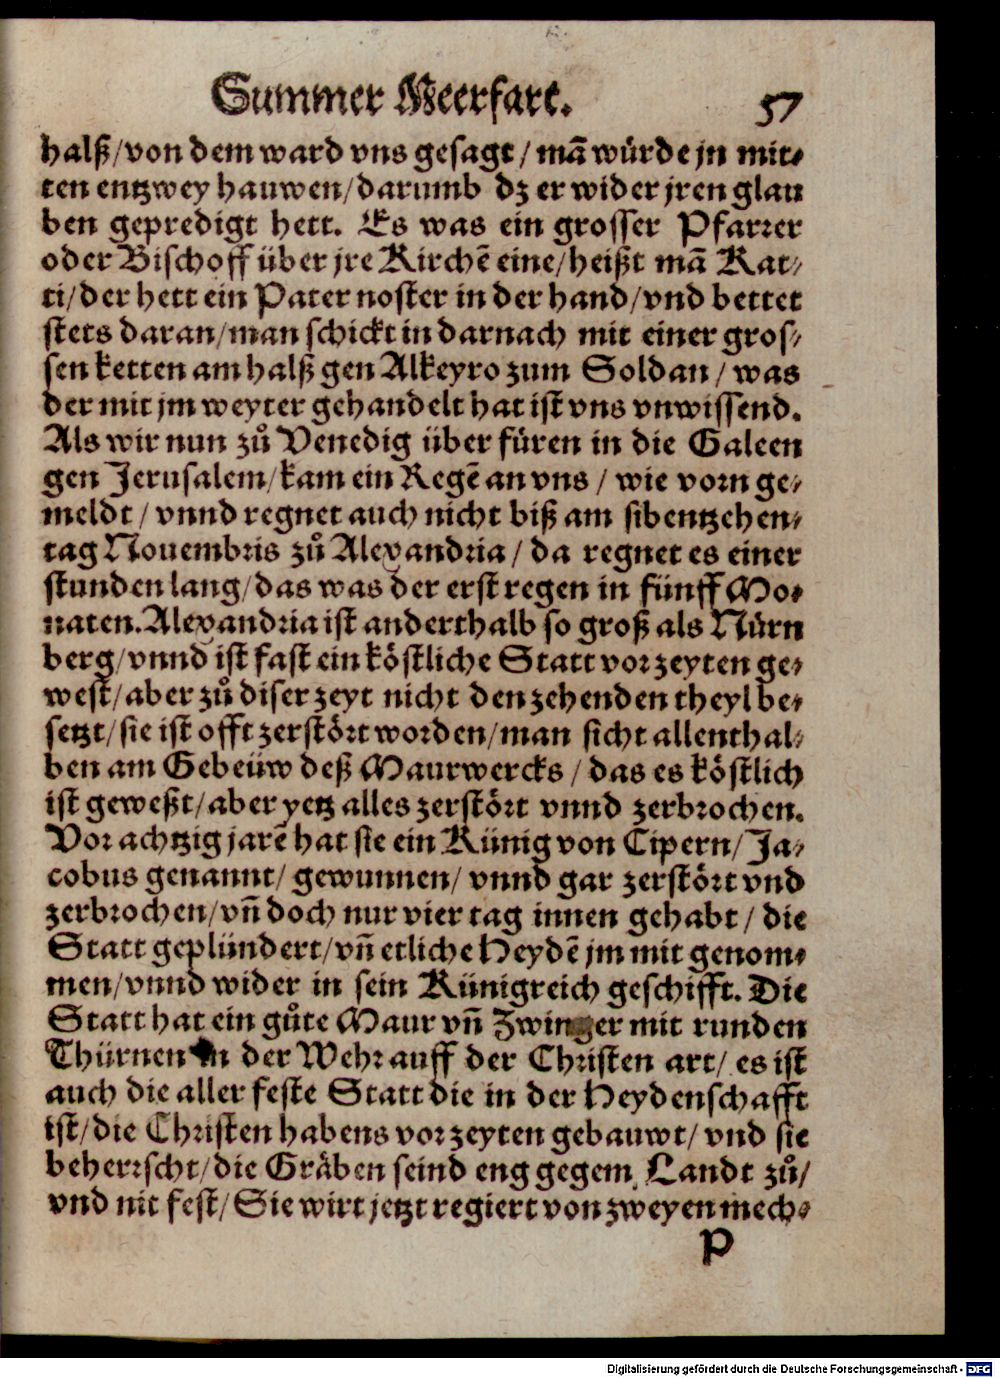 Summer Meerfart. 57
halß/von dem ward vns gesagt / mã würde jn mit⸗
ten entzwey hauwen/darumb dz er wider jren glau
ben gepredigt hett. Es was ein grosser Pfarrer
oder Bischoff über jre Kirchẽ eine/heißt mã Kat⸗
ti/der hett ein Pater noster in der hand/vnd bettet
stets daran/man schickt in darnach mit einer gros⸗
sen ketten am halß gen Alkeyro zum Soldan / was
der mit jm weyter gehandelt hat ist vns vnwissend.
Als wir nun zů Venedig über fůren in die Galeen
gen Jerusalem/kam ein Regẽ an vns / wie vorn ge⸗
meldt / vnnd regnet auch nicht biß am sibentzehen⸗
tag Nouembris zů Alexandria / da regnet es einer
stunden lang/das was der erst regen in fünff Mo⸗
naten. Alexandria ist anderthalb so groß als Nürn
berg/vnnd ist fast ein köstliche Statt vor zeyten ge⸗
west/aber zů diser zeyt nicht den zehenden theyl be⸗
setzt/sie ist offt zerstört worden/man sicht allenthal⸗
ben am Gebeüw deß Maurwercks / das es köstlich
ist geweßt/aber yetz alles zerstört vnnd zerbrochen.
Vor achtzig jarẽ hat sie ein Künig von Cipern/Ja⸗
cobus genannt/ gewunnen/ vnnd gar zerstört vnd
zerbrochen/vñ doch nur vier tag innen gehabt / die
Statt geplündert/vñ etliche Heydẽ jm mit genom⸗
men/vnnd wider in sein Künigreich geschifft. Die
Statt hat ein gůte Maur vñ Zwinger mit runden
Thürnen in der Wehr auff der Christen art/ es ist
auch die aller feste Statt die in der Heydenschafft
ist/die Christen habens vor zeyten gebauwt/ vnd sie
beherrscht/die Gräben seind eng gegem Landt zů/
vnd nit fest/Sie wirt jetzt regiert von zweyen mech⸗
P
Digitalisierung gefördert durch die Deutsche Forschungsgemeinschaft - DFG